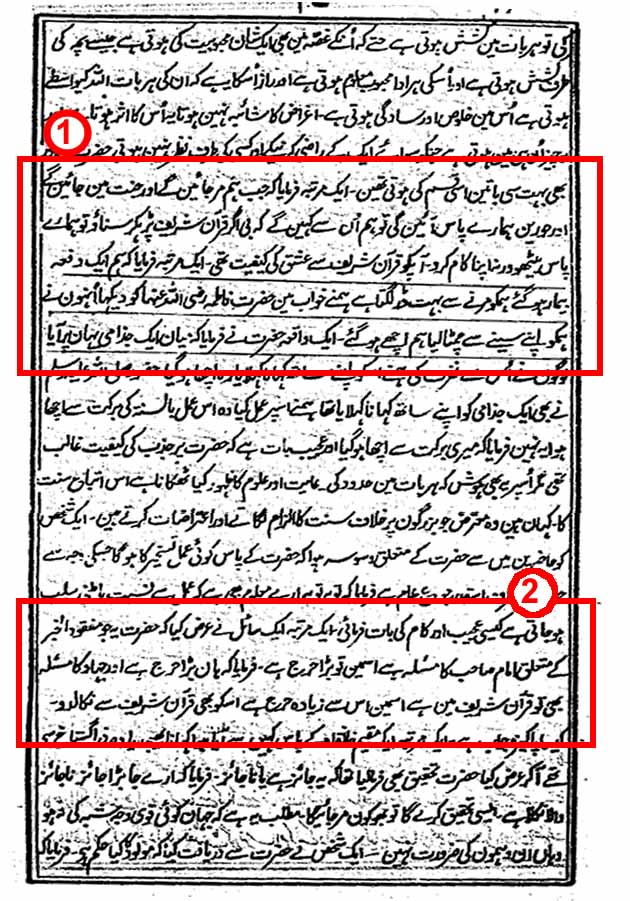 کی تو ہر بات مین کشش ہوتی ہے حتے کہ اُنکے غصہ مین بھی ایک شان محبوبیت کی ہوتی ہے جیسے بچہ کی
طرف کشش ہوتی ہے اور اُسکی ہر ادا محبوب معلوم ہوتی ہے اور راز اُسکا یہ ہے کہ ان کی ہر بات اللہ کیواسطے
ہوتی ہے اُس مین خلوص اور سادگی ہوتی ہے۔ اغراض کا شائبہ نہین ہوتا یہ اُس کا اثر ہوتا
1
نہین ہوتی حضرت
بھی بہت سی باتین اسی قسم کی ہوتی تھین۔ ایک مرتبہ فرمایا کہ جب ہم مر جائین گے اور جنت مین جائین گے
اور حورین ہمارے پاس آئین گی تو ہم اُن سے کہین گے کہ بی اگر قرآن شریف پڑہکر سناؤ تو ہمارے
پاس بیٹھو ورنہ اپنا کام کرو۔ آپکو قرآن شریف سے عشق کی کیفیت تھی۔ ایک مرتبہ فرمایا کہ ہم ایک دفعہ
بیمار ہو گئے ہمکو مرنے سے بہت ڈر لگتا ہے ہمنے خواب مین حضرت فاطمہ رضی اللہ عنہا کو دیکہا اُنہون نے
ہمکو اپنے سینے سے چمٹا لیا ہم اچھے ہو گئے۔ ایک واقعہ حضرت نے فرمایا کہ یہان ایک جذامی یہان پر آیا
لوگون نے اُس سے نفرت کی
نے بھی ایک جذامی کو اپنے ساتھ کہانا کہلایا تھا ہمنے اسپر عمل کیا وہ اس عمل بالسنۃ کی برکت سے اچھا
ہوا یہ نہین فرمایا کہ میری برکت سے اچھا ہو گیا اور عجیب بات ہے کہ حضرت پر جذب کی کیفیت غالب
تھی مگر اُسپر یہ بھی ہوش کہ ہر بات مین حدود کی رعایت اور علوم کا ظہور کیا ٹھکانا ہے اس اتباع سنت
کا۔ کہان مین وہ معترض جو بزرگون پر خلاف سنت کا الزام لگاتے اور اعتراضات کرتے مین۔ ایک شخص
کو حاضرین مین سے حضرت کے متعلق وسوسہ پیدا کہ حضرت کے پاس کوئی عمل تسخیر کا ہو گا جسکی وجہ سے
2
فرمایا کہ توبہ توبہ ارے معلوم ہے کہ عمل سے نسبت باطنی سلب
ہو جاتی ہے کیسی عجیب اور کام کی بات فرمائی۔ ایک مرتبہ ایک سائل نے عرض کیا کہ حضرت یہ جو مفقود الخبر
کے متعلق امام صاحب کا مسئلہ ہے اسمین تو بڑا حرج ہے۔ فرمایا کہ ہان بڑا حرج ہے اور جہاد کا مسئلہ
بھی تو قرآن شریف مین ہے اسمین اس سے زیادہ حرج ہے اسکو بھی قرآن شریف سے نکالدو۔
تھے آکر عرض کیا حضرت تحقیق بھی فرمالیا تھا کہ یہ جائز ہے یا نا جائز۔ فرمایا کہ ارے جا بڑا جائز ناجائز
والا نکلا ہے۔ ایسی تحقیق کرنے گا تو بھوکون مر جائیگا۔ مطلب یہ ہے کہ جہان کوئی قوی وجہ شبہ کی نہ ہو
وہان ان وہمون کی ضرورت نہین۔ ایک شخص نے حضرت سے دریافت کیا کہ مولود کا کیا حکم ہے فرمایا کہ